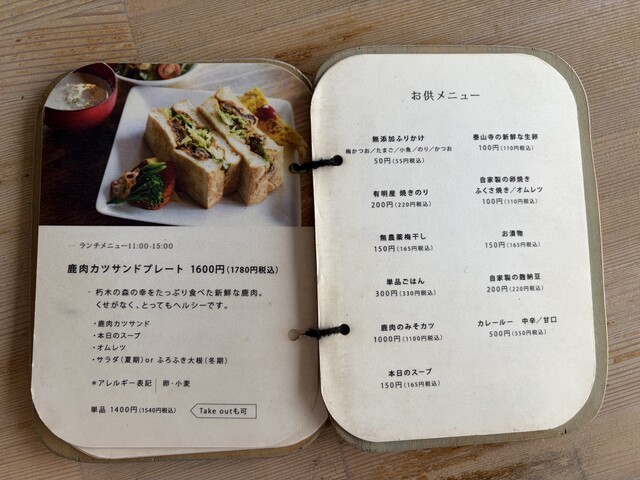 ― ランチメニュー11:00-15:00
鹿肉カツサンドプレート 1600円(1780円税込)
・朽木の森の幸をたっぷり食べた新鮮な鹿肉。
くせがなく、とってもヘルシーです。
・鹿肉カツサンド
・本日のスープ
・オムレツ
・サラダ(夏期)or ふろふき大根(冬期)
＊アレルギー表記 | 卵・小麦
単品 1400円(1540円税込)
Take outも可
お供メニュー
無添加ふりかけ
梅かつお/たまご/小魚/のり/かつお
50円(55円税込)
有明産 焼きのり
200円(220円税込)
無農薬梅干し
150円(165円税込)
単品ごはん
300円(330円税込)
鹿肉のみそカツ
1000円(1100円税込)
本日のスープ
150円(165円税込)
泰山寺の新鮮な生卵
100円(110円税込)
自家製の卵焼き
ふくさ焼き/オムレツ
100円(110円税込)
お漬物
150円(165円税込)
自家製の麹納豆
200円(220円税込)
カレールー 中辛/甘口
500円(550円税込)